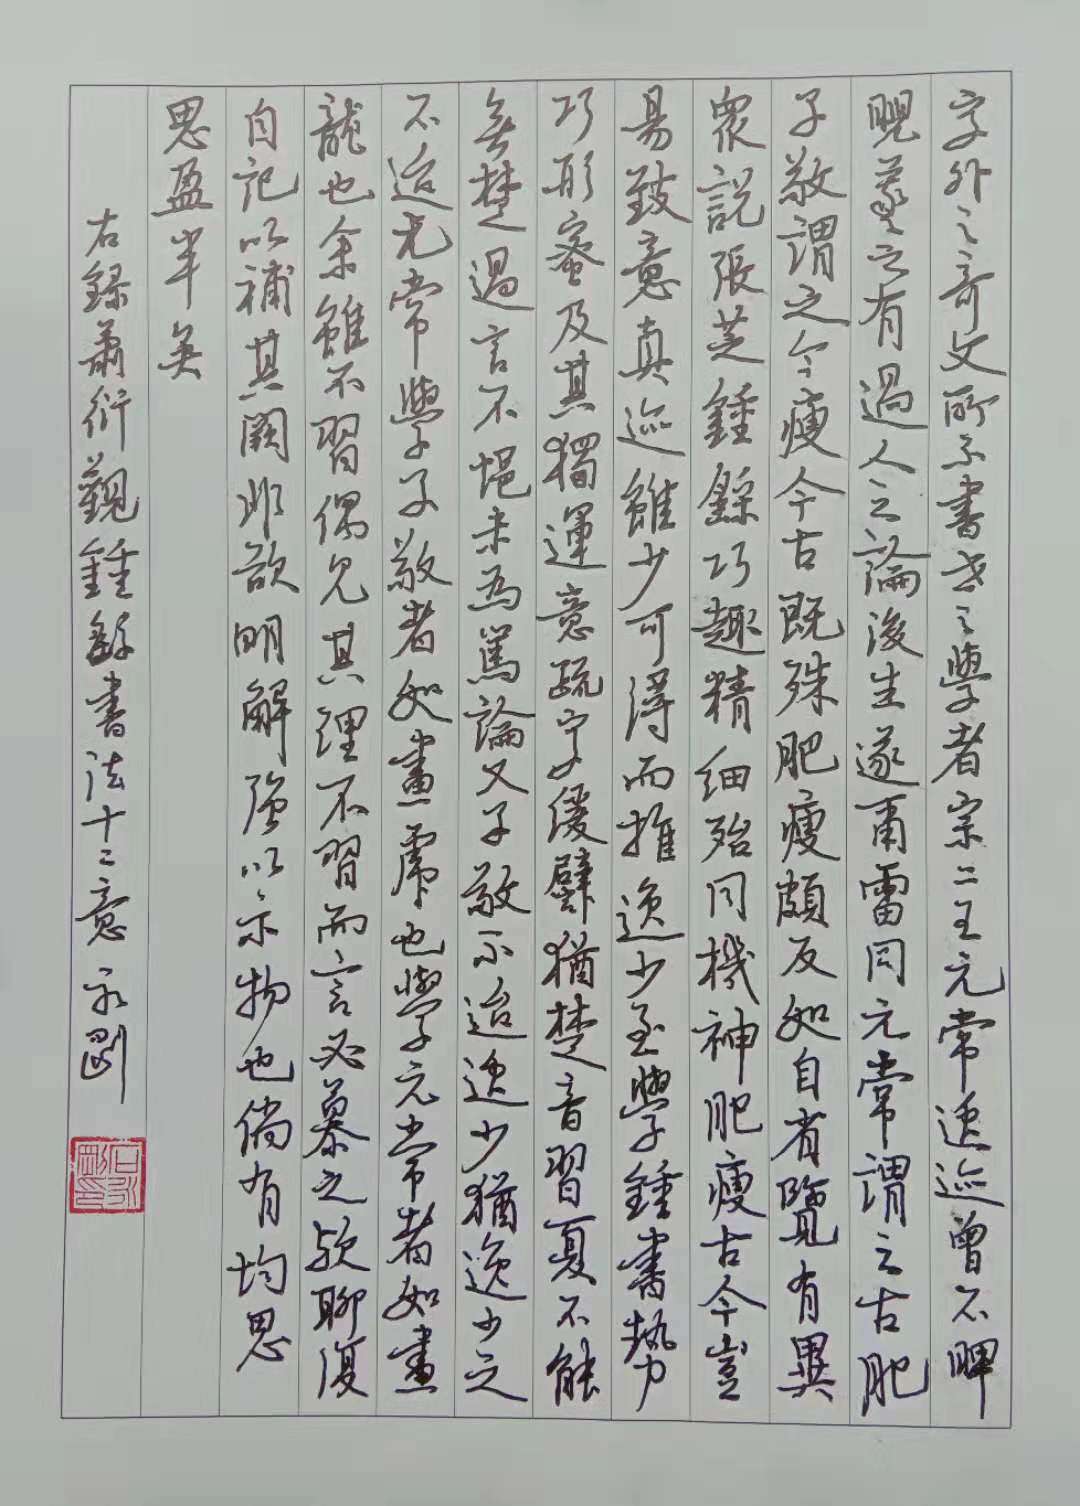 字外之奇文所不書世之學者宗二王元常逸迹曾不睥
睨羲之有過人之論後生遂爾雷同元常謂之古肥
子敬謂之今瘦今古既殊肥瘦頗反如自省覽有異
衆說張芝鍾繇巧趣精細殆同機神肥瘦古今豈
易致意真迹雖少可得而推逸少至學鍾書勢
巧形密及其獨運意疏字緩譬猶楚音習夏不能
無楚過言不悒未為篤論又子敬不迨逸少猶逸少之
不迨元常學子敬者如畫虎也學元常者如畫
龍也余雖不習偶見其理不習而言必慕之歟聊復
自記以補其闕非欲明解強以示物也倘有均思
思盈半矣
右錄蕭衍觀鍾繇書法十二意 永剛